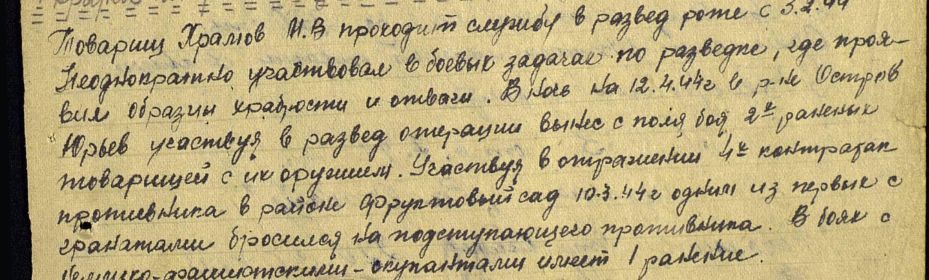 Товарищ Храмов И.В проходит службу в развед роте с 3.2.44
Неоднократно участвовал в боевых задачах по разведке, где проя-
вил образцы храбрости и отваги. В ночь на 12.4.44г в р-не Остров
Юрьев участвуя в развед операции вынес с поля боя 2х раненых
товарищей с их оружием. Участвуя в отражении 4х контратак
противника в районе Фруктовый сад 10.3.44г одним из первых с
гранатами бросился на подступающего противника. В боях с
немецко-фашистскими-окупантами имеет 1 ранение.